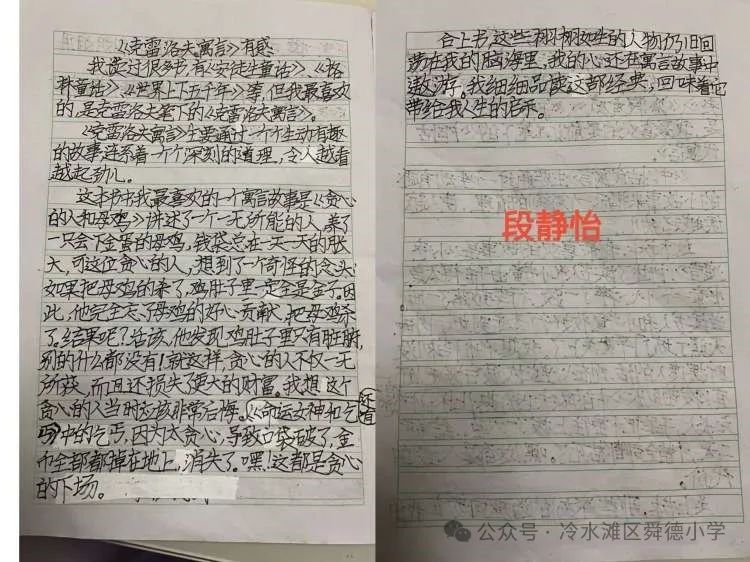 《克雷洛夫寓言》有感
我读过很多书,有《安徒生童话》、《格
林童话》、《世界上下五千年》等,但我最喜欢
的,是克雷洛夫笔下的《克雷洛夫寓言》。
《克雷洛夫寓言》主要通过一个个生动有趣
的故事连系着一个个深刻的道理,令人越看
越起劲儿。
这本书中我最喜欢的一个寓言故事是《贪心
的人和母鸡》讲述了一个一无所能的人,养了
一只会下金蛋的母鸡,钱袋总在一天一天的胀
大,可这位贪心的人,想到了一个奇怪的念头:
如果把母鸡的来了,鸡肚子里一定全是金子。因
此,他完全忘了母鸡的好心贡献,把母鸡杀
了。结果呢?活该,他发现鸡肚子里只有脏腑,
别的什么都没有!就这样,贪心的人不仅一无
所获,而且还损失了更大的财富。我想这个
贪心的人当时应该非常后悔。还有《命运女神和乞
丐》中的乞丐,因为太贪心,导致口袋破了,金
币全部都掉在地上,消失了。嘿!这都是贪心
的下场。
合上书,这些栩栩如生的人物仍旧回
荡在我的脑海里,我的心还在寓言故事中
遨游。我细细品读这部经典,回味着它
带给我人生的启示。
段静怡
公众号·冷水滩区舜德小学